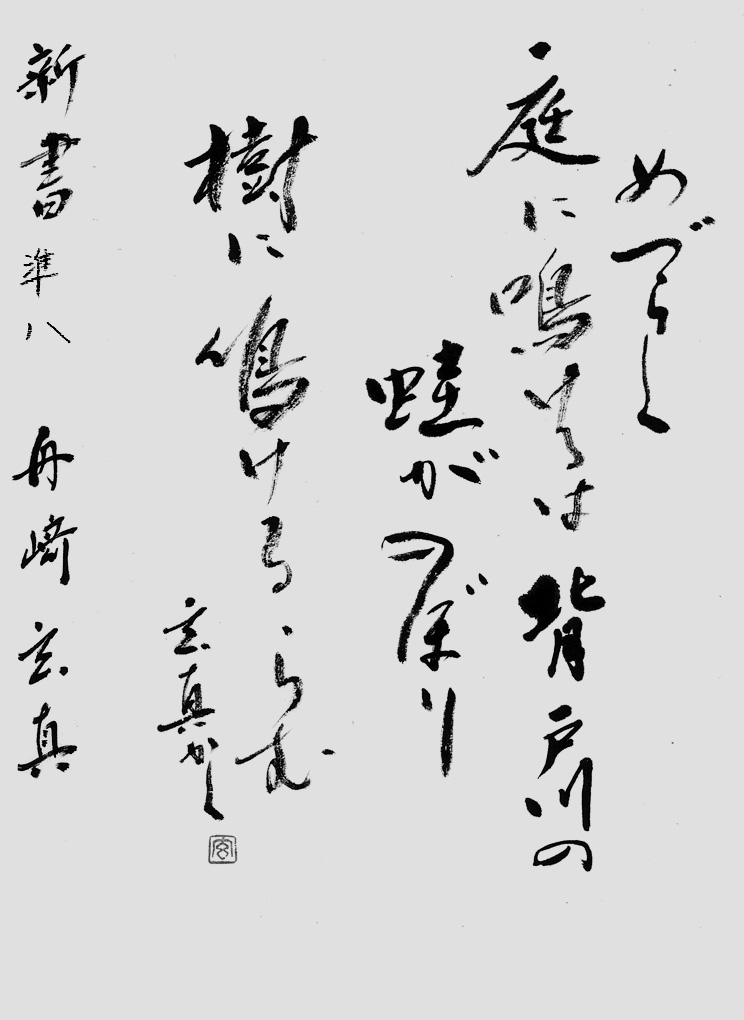 めづらしく
庭に鳴けるは背戸川の
蛙がのぼり
樹に鳴けるらむ
玄真かく
新書準八 舟崎玄真